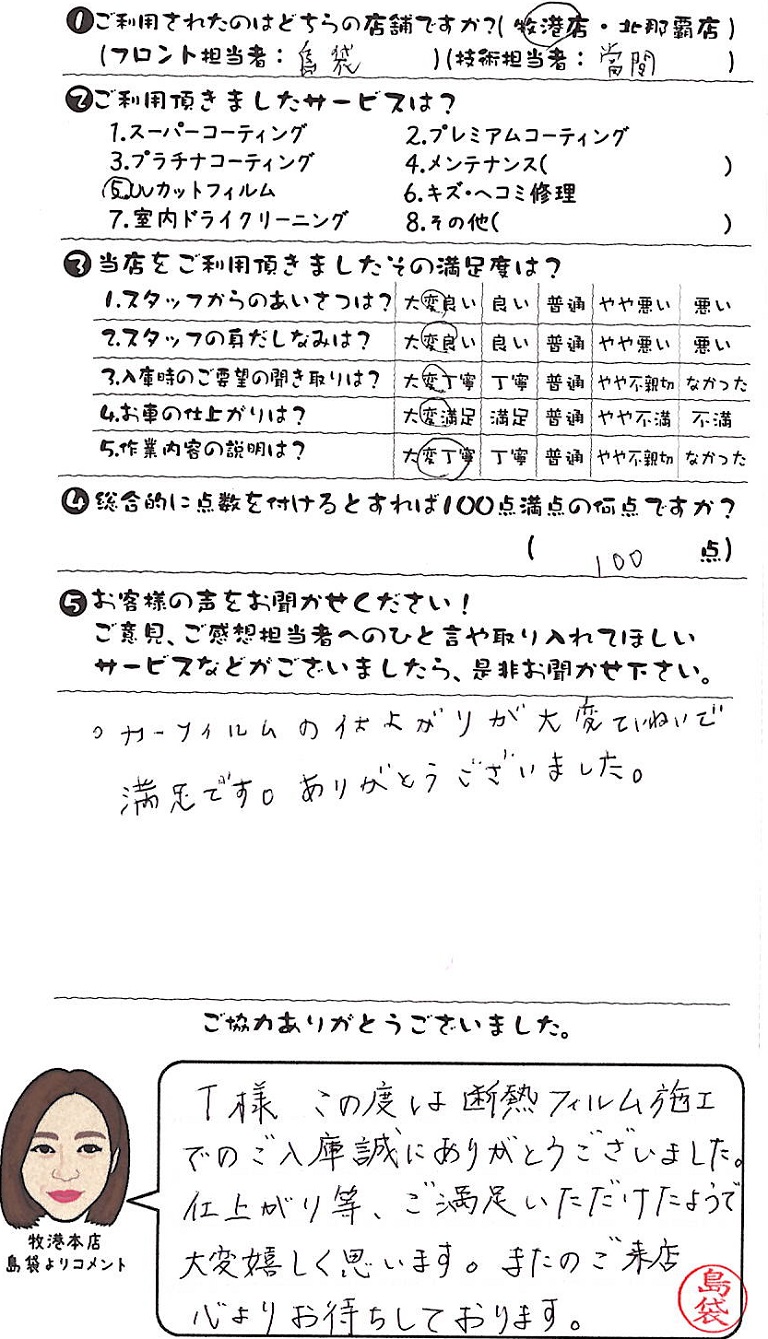 ❶ご利用されたのはどちらの店舗ですか?(牧港店・北那覇店)
(フロント担当者: 島袋 )(技術担当者: 當間 )
❷ご利用頂きましたサービスは?
1.スーパーコーティング 2.プレミアムコーティング
3.プラチナコーティング 4.メンテナンス( )
5.UVカットフィルム 6.キズ・ヘコミ修理
7.室内ドライクリーニング 8.その他( )
❸当店をご利用頂きましたその満足度は?
1.スタッフからのあいさつは? 大変良い 良い 普通 やや悪い 悪い
2.スタッフの身だしなみは? 大変良い 良い 普通 やや悪い 悪い
3.入庫時のご要望の聞き取りは? 大変丁寧 丁寧 普通 やや不親切 なかった
4.お車の仕上がりは? 大変満足 満足 普通 やや不満 不満
5.作業内容の説明は? 大変丁寧 丁寧 普通 やや不親切 なかった
❹総合的に点数を付けるとすれば100点満点の何点ですか?
( 100 点)
❺お客様の声をお聞かせください!
ご意見、ご感想担当者へのひと言や取り入れてほしい
サービスなどがございましたら、是非お聞かせ下さい。
○カーフィルムの仕上がりが大変ていねいで
満足です。ありがとうございました。
ご協力ありがとうございました。
T様 この度は断熱フィルム施工
でのご入庫誠にありがとうございました。
仕上がり等、ご満足いただけたようで
大変嬉しく思います。またのご来店
心よりお待ちしております。
牧港本店
島袋よりコメント
島袋